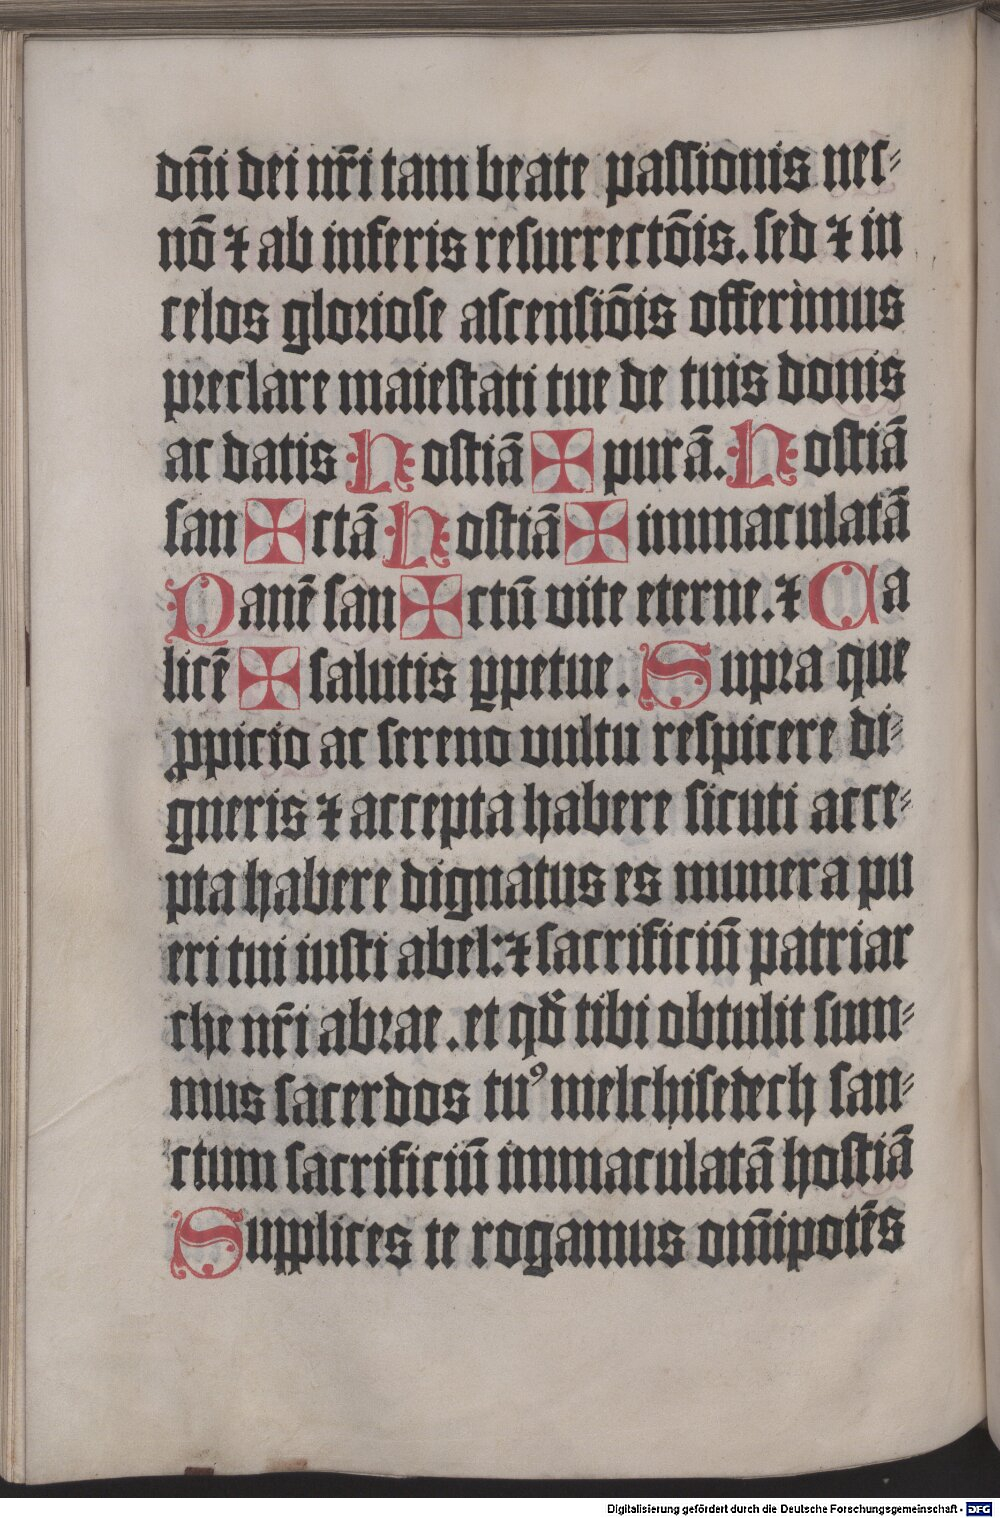 dn̄i dei nr̄i tam beate passionis nec⸗
nō ⁊ ab inferis resurrectōis. sed ⁊ in
celos gloriose ascensiōis offerimus
preclare maiestati tue de tuis donis
ac datis Hostiā ✠ purā. Hostiā
san ✠ ctā Hostiā ✠ immaculatā
Panē san ✠ ctū vite eterne. ⁊ Ca
licē ✠ salutis ꝑpetue. Supra que
ꝓpicio ac sereno vultu respicere di⸗
gneris ⁊ accepta habere sicuti acce⸗
pta habere dignatus es munera pu
eri tui iusti abel: ⁊ sacrificiū patriar
che nr̄i abrae. et qd̄ tibi obtulit sum⸗
mus sacerdos tuꝰ melchisedech san⸗
ctum sacrificiū immaculatā hostiā
Supplices te rogamus om̄ipotēs
Digitalisierung gefördert durch die Deutsche Forschungsgemeinschaft - DFG